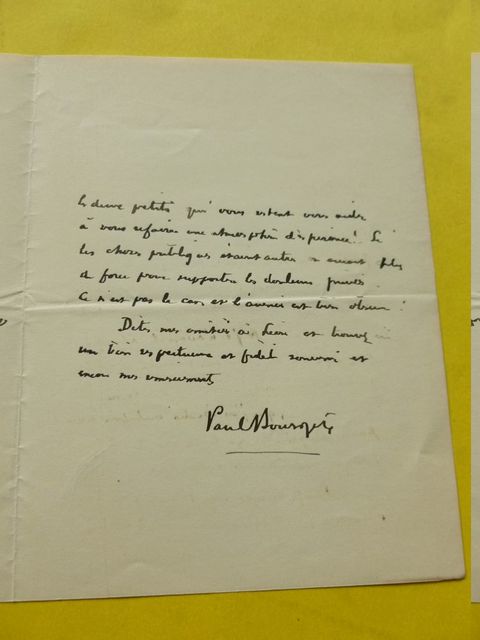 les deux petits qui vous restent vous aider
à vous refaire une atmosphère d'espérance! Si
les choses publiques étaient autres on aurait plus
de force pour supporter les douleurs privées.
Ce n'est pas le cas, et l'avenir est bien obscur!
Dites mes amitiés à Léon et trouvez
un bien respectueux et fidèle souvenir et
encore mes remerciements
Paul Bourget